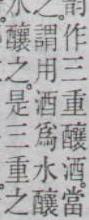 作三重釀酒當
謂用酒爲水釀
之是三重之